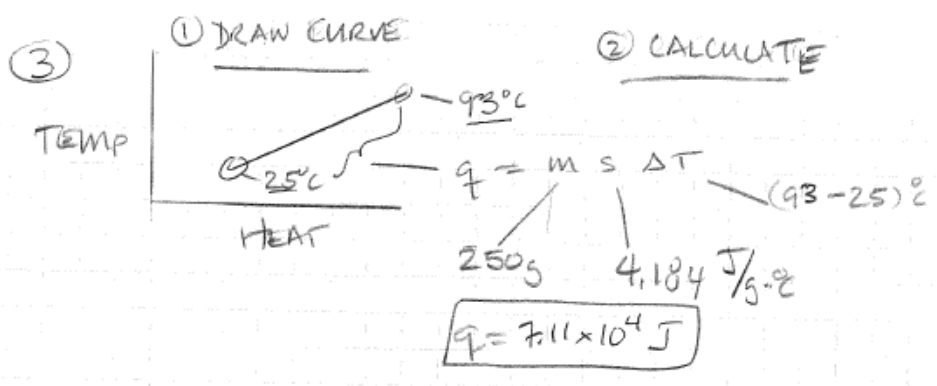 ③ ① DRAW CURVE ② CALCULATE
TEMP
93°C
25°C
q = m s ΔT
(93-25)°C
HEAT
250g
4.184 J/g·°C
q = 7.11×10⁴ J